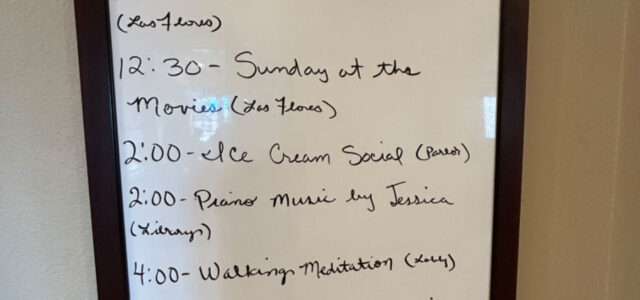 (Las Flores)
12:30- Sunday at the
Movies (Las Flores)
2:00- Ice Cream Social (Parlor)
2:00- Piano Music by Jessica
(Library)
4:00- Walking Meditation (Lobby)